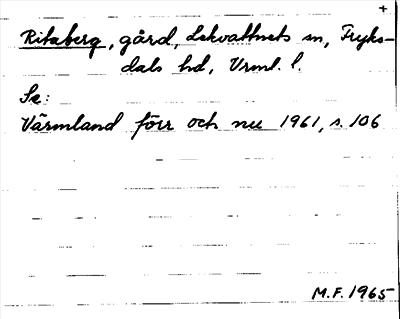 +
Ritaberg, gård, Lekvattnets sn, Fryks-
dals hd, Vrml. l.
Se:
Värmland förr och nu 1961, s. 106
M.F. 1965